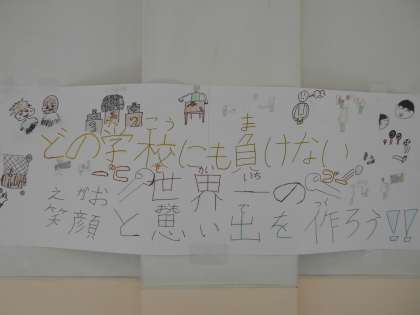 こう ま
どの学校にも負けない
かい いち
世界一の
え がお
笑顔と思い出を作ろう!!